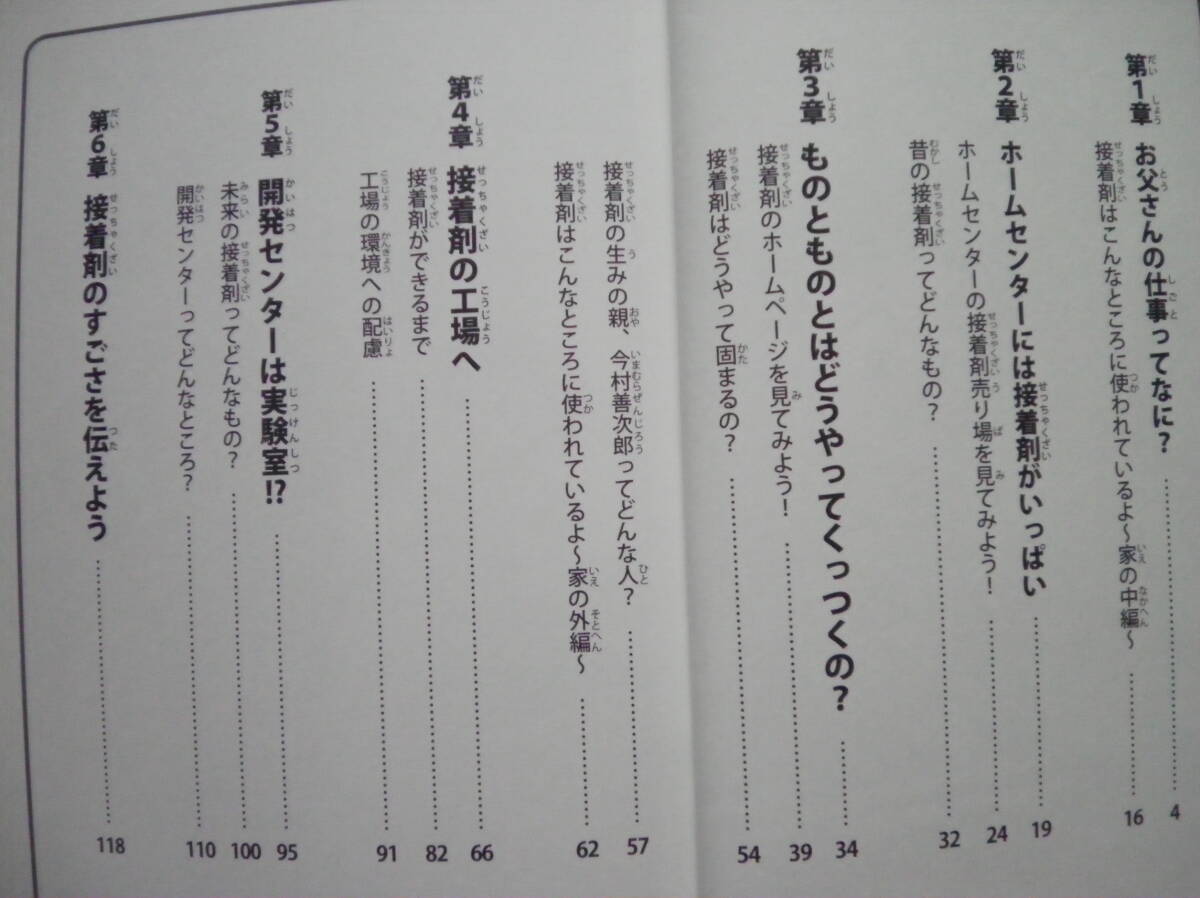 第1章 お父さんの仕事ってなに? 4
接着剤はこんなところに使われているよ〜家の中編〜 16
第2章 ホームセンターには接着剤がいっぱい 19
ホームセンターの接着剤売り場を見てみよう! 24
昔の接着剤ってどんなもの? 32
第3章 ものとものとはどうやってくっつくの? 34
接着剤のホームページを見てみよう! 39
接着剤はどうやって固まるの? 54
接着剤の生みの親、今村善次郎ってどんな人? 57
接着剤はこんなところに使われているよ〜家の外編〜 62
第4章 接着剤の工場へ 66
接着剤ができるまで 82
工場の環境への配慮 91
第5章 開発センターは実験室!? 95
未来の接着剤ってどんなもの? 100
開発センターってどんなところ? 110
第6章 接着剤のすごさを伝えよう 118